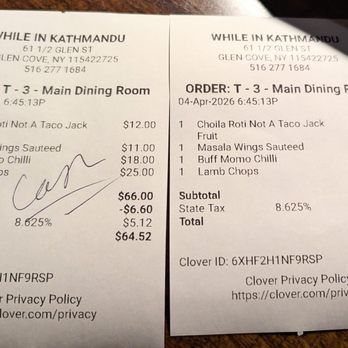 WHILE IN KATHMANDU
61 1/2 GLEN ST
GLEN COVE, NY 115422725
516 277 1684
T - 3 - Main Dining Room
6:45:13P
Roti Not A Taco Jack $12.00
Wings Sauteed $11.00
Chilli $18.00
$25.00
Cash
$66.00
-$6.60
8.625% $5.12
$64.52
H1NF9RSP
Privacy Policy
clover.com/privacy
WHILE IN KATHMANDU
61 1/2 GLEN ST
GLEN COVE, NY 115422725
516 277 1684
ORDER: T - 3 - Main Dining
04-Apr-2026 6:45:13P
1 Choila Roti Not A Taco Jack
Fruit
1 Masala Wings Sauteed
1 Buff Momo Chilli
1 Lamb Chops
Subtotal
State Tax 8.625%
Total
Clover ID: 6XHF2H1NF9RSP
Clover Privacy Policy
https://clover.com/priv